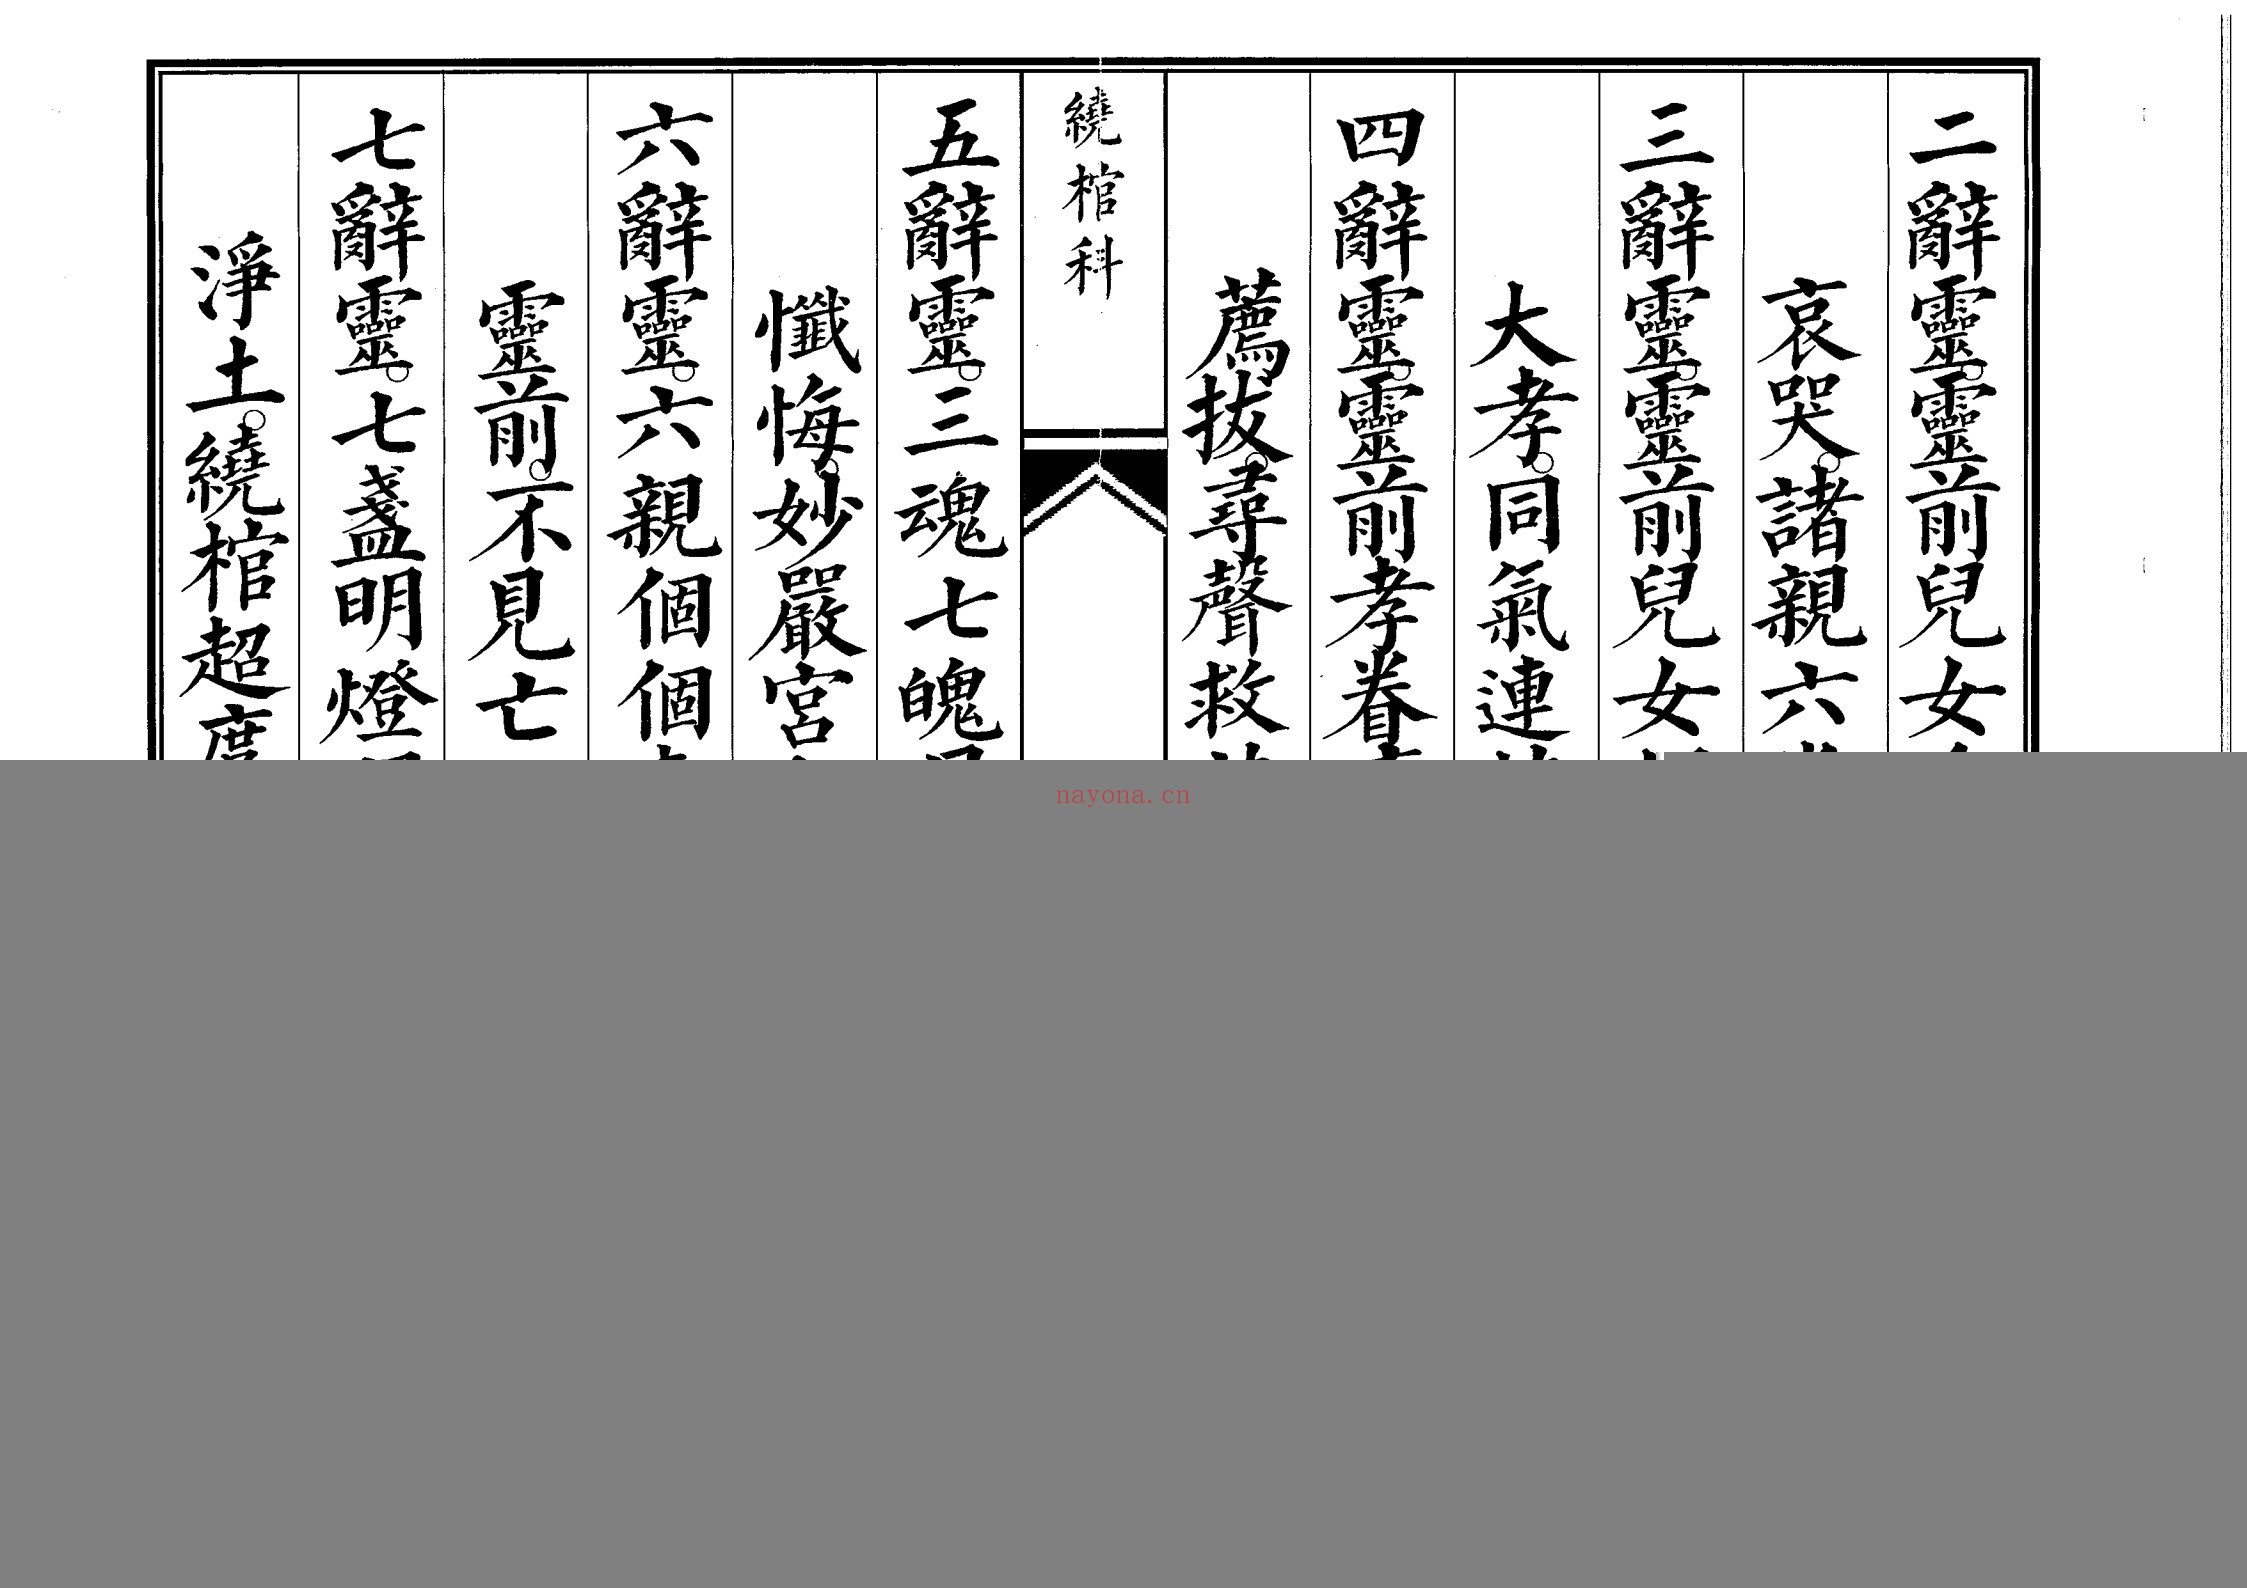 二辭靈。靈前兒女
哀哭。諸親六
三辭靈。靈前兒女
大孝。同氣連
四辭靈。靈前孝眷
薦拔。尋聲救
繞棺科
五辭靈。三魂七魄
懺悔。妙嚴宮
六辭靈。六親個個
靈前。不見亡
七辭靈。七盞明燈
淨土。繞棺超度
nayona.cn